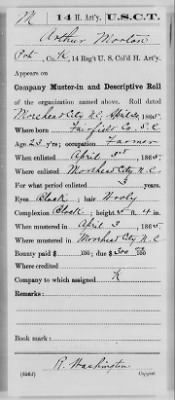 M | 14 H. Art'y. | U.S.C.T.
Arthur Morton
Pvt., Co. K, 14 Reg't U. S. Col'd H. Art'y.
Appears on
Company Muster-in and Descriptive Roll
of the organization named above. Roll dated
Morehead City N.C., 1865.
Where born Fairfield Co. S.C.
Age 23 y'rs; occupation Farmer
When enlisted April 3rd, 1865.
Where enlisted Morehead City N.C.
For what period enlisted 3 years.
Eyes Black; hair Wooly
Complexion Black; height 5 ft. 4 in.
When mustered in April 3, 1865.
Where mustered in Morehead City N.C.
Bounty paid $ 100; due $ 300 100
Where credited
Company to which assigned K
Remarks:
Book mark:
R. Washington
Copyist.